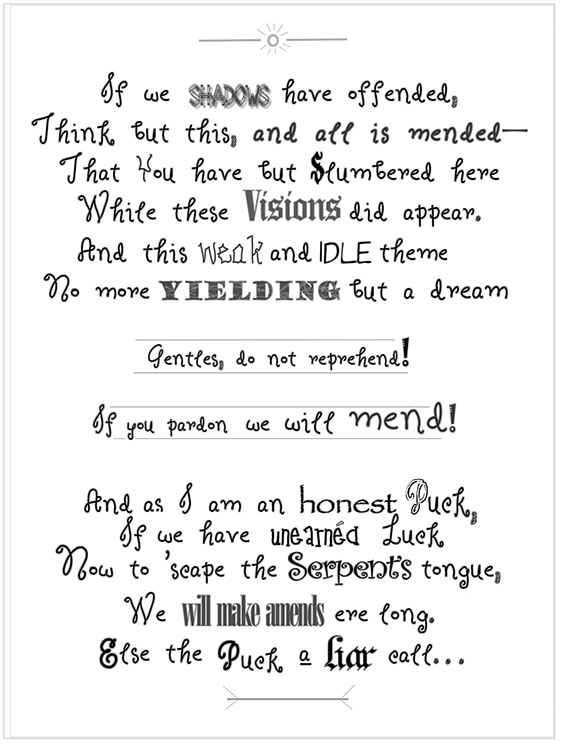 If we SHADOWS have offended,
Think but this, and all is mended—
That You have but Slumbered here
While these Visions did appear.
And this weak and IDLE theme
No more YIELDING but a dream
Gentles, do not reprehend!
If you pardon we will mend!
And as I am an honest Puck,
If we have unearnéd Luck
Now to 'scape the Serpent's tongue,
We will make amends ere long.
Else the Puck a liar call...